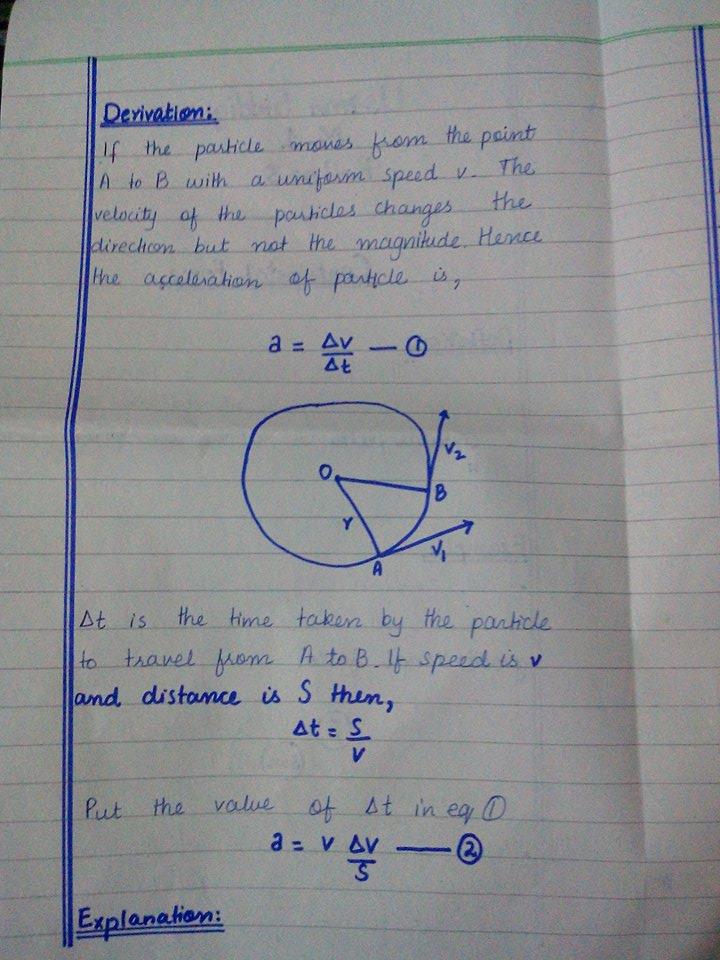 Derivation:
If the particle moves from the point
A to B with a uniform speed v. The
velocity of the particles changes the
direction but not the magnitude. Hence
the acceleration of particle is,
a = Δv/Δt — ①
V2
O
B
r
V1
A
Δt is the time taken by the particle
to travel from A to B. If speed is v
and distance is S then,
Δt = S/v
Put the value of Δt in eq ①
a = v Δv/S — ②
Explanation: